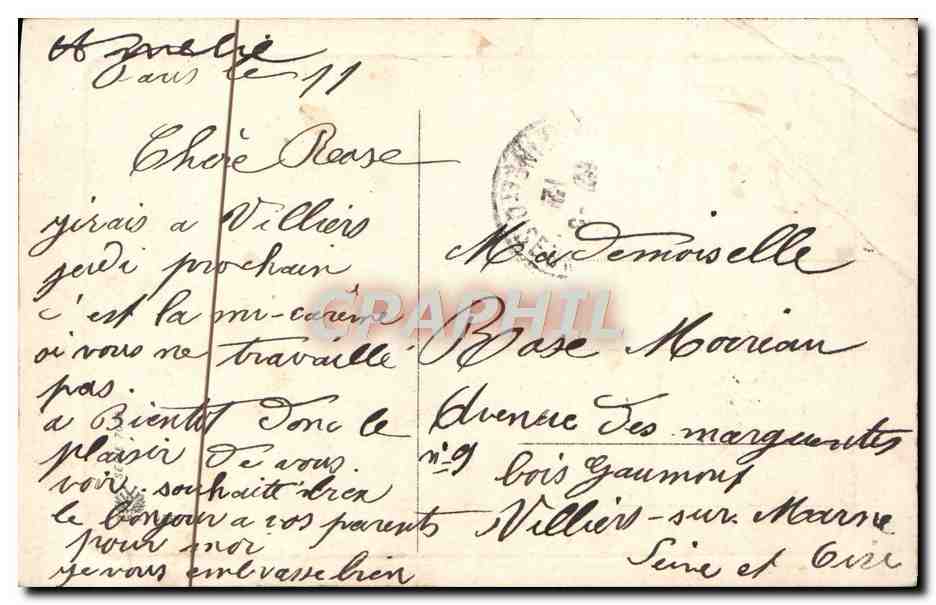 Amelie
Paris le 11
Chère Rose
j'irais a Villiers
jeudi prochain
c'est la mi-carême
oi vous ne travaille
pas.
a Bientot donc le
plaisir de vous
voir. souhaitte bien
le bonjour a vos parents
pour moi
je vous embrasse bien
Mademoiselle
Rose Moirian
Avenue des marguerites
n° 9
bois Gaumont
Villiers-sur-Marne
Seine et Oise
CPAPHIL